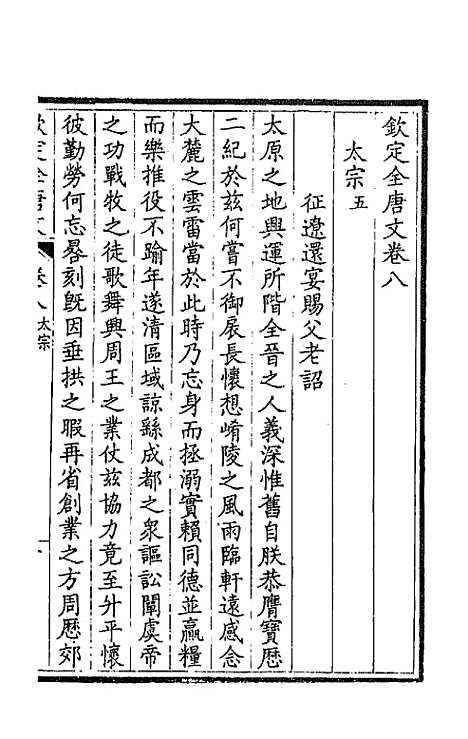 欽定全唐文卷八
太宗五
征遼還宴賜父老詔
太原之地興運所階全晉之人義深惟舊自朕恭膺寶歷
二紀於兹何嘗不御扆長懷想崤陵之風雨臨軒遠感念
大麓之雲雷當於此時乃忘身而拯溺實賴同德並贏糧
而樂推役不踰年遂清區域諒繇成都之衆謳訟闡虞帝
之功戰牧之徒歌舞興周王之業仗兹協力竟至升平懷
彼勤勞何忘晷刻旣因垂拱之暇再省創業之方周歷郊
欽定全唐文 卷八 太宗 一